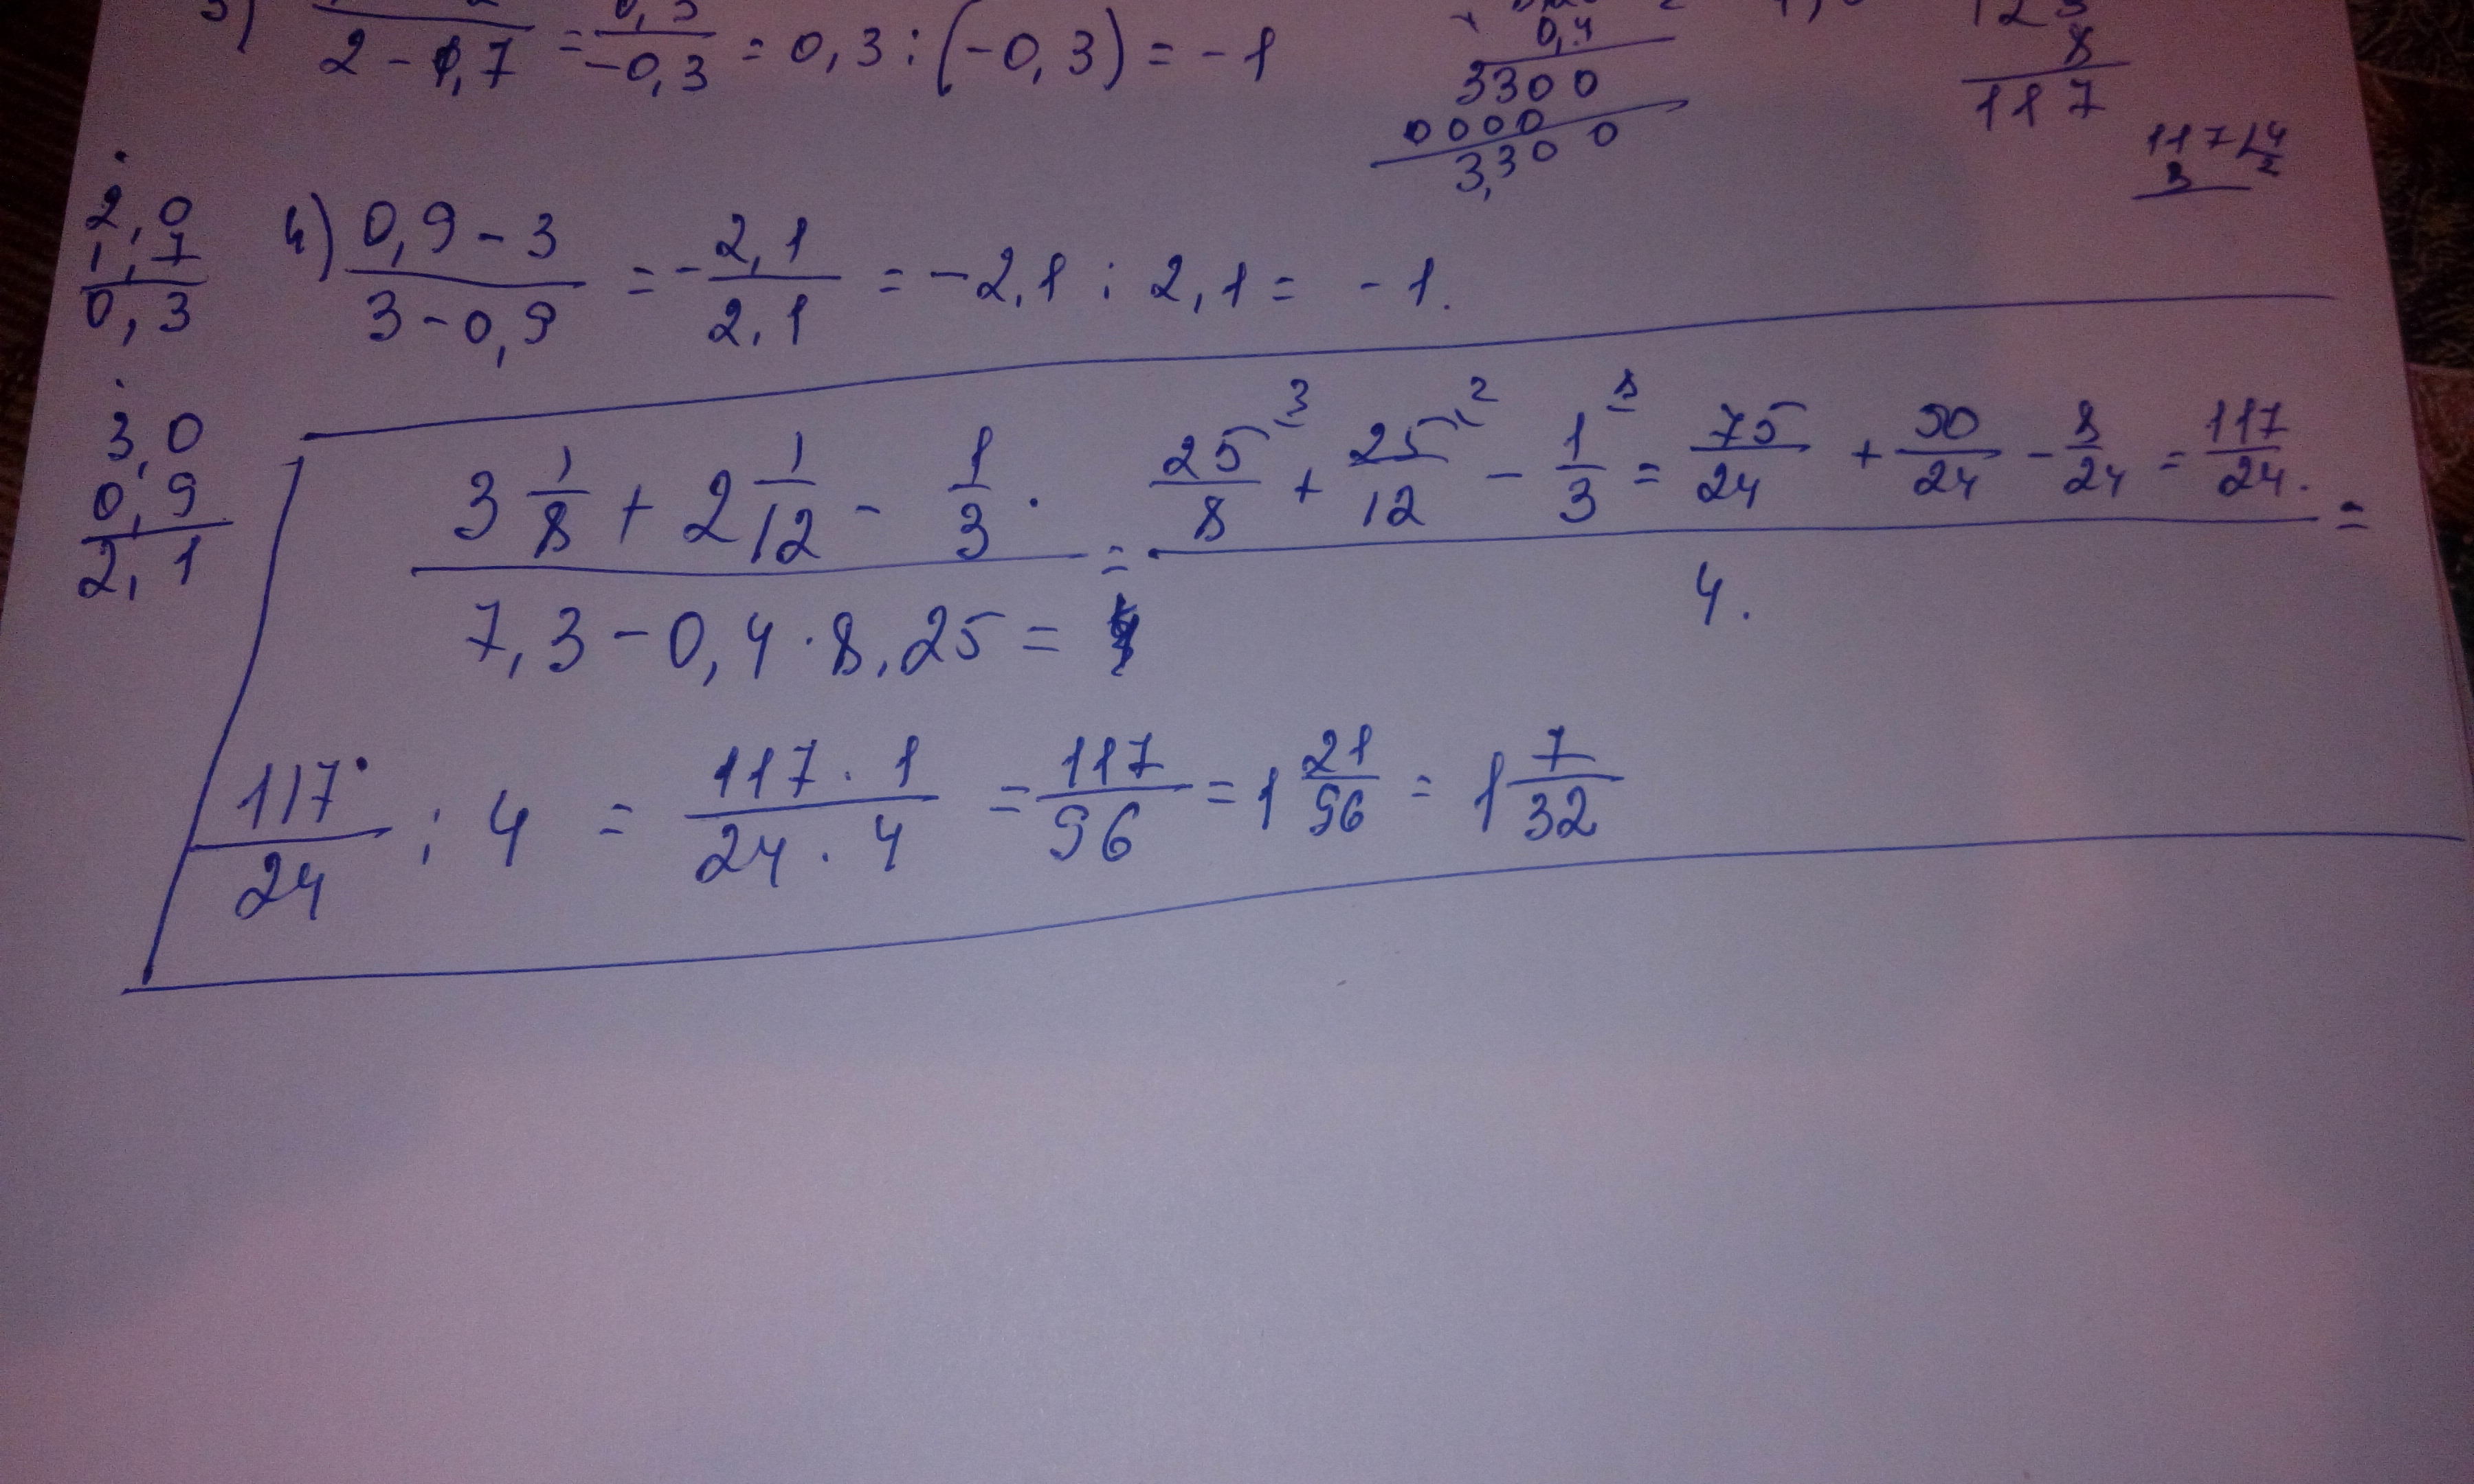 3) 2 - 1,7 = 0,3 / -0,3 = 0,3 : (-0,3) = -1
0,4
3300
0000
3,300
8
117
117 4
2,0
1,7
0,3
4) (0,9 - 3) / (3 - 0,9) = - 2,1 / 2,1 = -2,1 : 2,1 = -1.
3,0
0,9
2,1
3 1/8 + 2 1/12 - 1/3 . = 25/8 ³ + 25/12 ² - 1/3 ⁸ = 75/24 + 50/24 - 8/24 = 117/24. =
7,3 - 0,4 · 8,25 = 4.
117/24 : 4 = 117 · 1 / 24 · 4 = 117/96 = 1 21/96 = 1 7/32